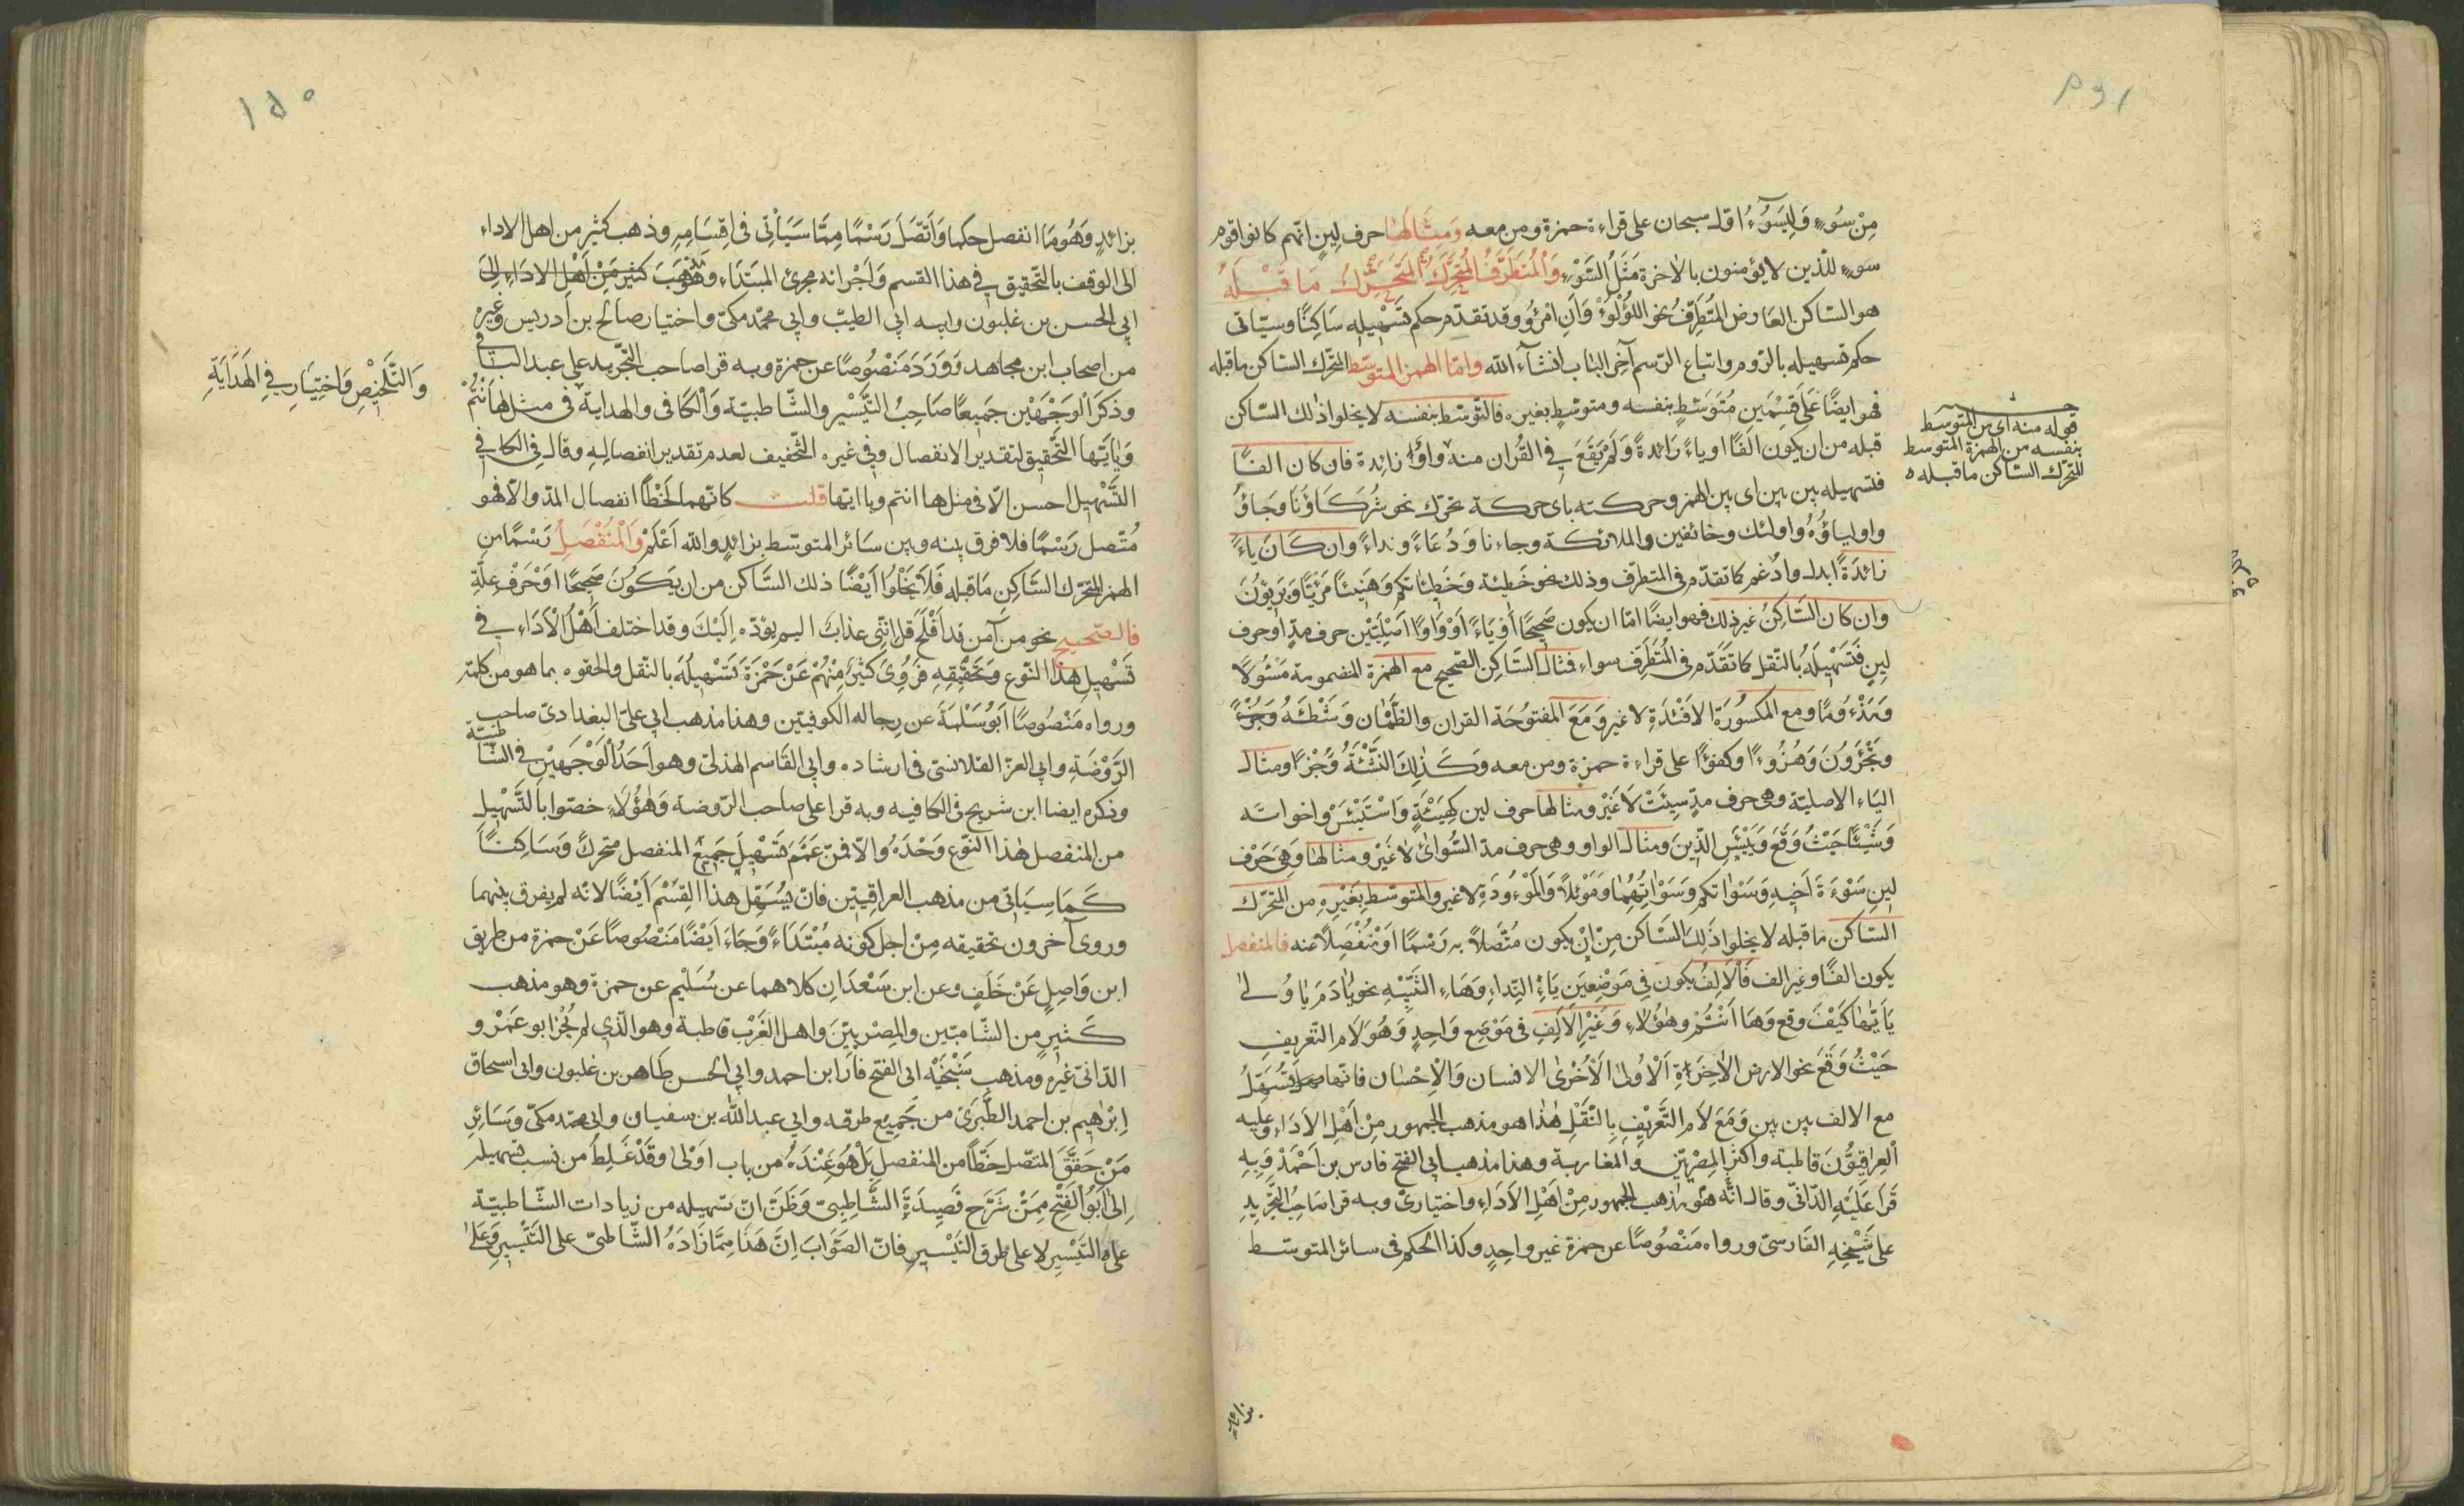 مِنْ سُوءٍ وَلِيَسُوءُ اوّل سبحان على قراءة حمزة ومن معه وَمِثَالُهَا حرف لِينٍ انّهم كانوا قوم
سوءٍ للّذين لا يؤمنون بالاخرة مَثَلُ السَّوْءِ وَالْمُتَطَرِّفُ الْمُتَحَرِّكُ الْمُتَحَرِّكُ مَا قَبْلَهُ
هو السّاكن العَارض المُتَطَرِّفُ نحو اللؤلؤُ وَاَنِ امْرُؤٌ وقد تقدّم حكم تَسْهِيلِهِ سَاكِنًا وسيَاتى
حكم تسهيله بالرّوم واتباع الرّسم آخر البَاب انشآء الله وامّا الهمز المتوسّط المتحرّك السّاكن ما قبله
فهو ايضًا عَلَى قِسْمَينِ مُتَوَسّطٍ بنفسه ومتوسّطٍ بغيره فالمتوسّط بنفسه لا يخلوا ذٰلك السّاكن
قبله من ان يكون الفًا او ياءً زَائدةً وَلَمْ يَقَعَ فِي القُران منه وَاوًا زائدة فان كان الفًا
فتسهيله بين بين اى بين الهمز وحركته باى حركة تحرّك نحو شُرَكَاؤُنَا وجَاؤُ
واولياؤُهُ واولئك وخائفين والملائكة وجاءنا وَدُعَاءً ونداءً وان كَانَ يَاءً
زائدَةً ابدل وادغم كما تقدّم فى المتطرّف وذلك نحو خَطِيئة وَخَطِيئاتكم وَهَنِيئاً مَرِيئًا وَبَرِيؤُنَ
وان كان السّاكِنُ غير ذلك فهو ايضًا امّا ان يكون صَحِيحًا اَوْ يَاءً اَوْ وَاوًا اَصْلِيَّتَيْن حرف مدٍّ او حرف
لينٍ فَتَسْهِيلُهُ بالنّقل كما تقدّم فى المُتَطَرِّف سواء فمثال السّاكِن الصّحيح مع الهمزة المضمومة مَسْئُولًا
وَمَذْءُومًا ومع المكسُورَة الاَفْئِدَةِ لا غير وَمَعَ المفتوُحَة القران والظَّمْاٰن وَشَطْئَهُ وَجُزْءًا
وتَجْئَرُونَ وَهُزُوءًا وكفؤًا على قراءة حمزة ومن معه وَكَذٰلِكَ النَّشْئَةُ وَجُزْءًا ومثال
اليَاء الاصليّة وهى حرف مدٍّ سِيئَتْ لَا غَيْرُ ومثالها حرف لين كَهَيْئَةِ وَاسْتَيْئَسَ واخواته
وَشَيْئًا حَيْثُ وَقَعَ وَيَيْئَسِ الَّذِينَ ومثال الواو وهى حرف مدّ السُّوأىٰ لا غَيْرُ ومثالُهَا وَهِىَ حَرْف
لينٍ سَوْءَةَ اَخِيهِ وَسَوْاٰتكم وَسَوْاٰتُهُمَا وَمَوْئِلًا وَالْمَوْءُودَة لا غير والمتوسّط بِغَيْرِهِ من المتحرّك
السّاكن ما قبله لا يخلوا ذٰلِكَ السّاكن مِنْ اَنْ يكون مُتّصلاً به رَسْمًا اَوْ مُنْفَصِلاً عنه فالمنفصل
يكون الفًا وغير الف فَالْاَلِفُ يكون فِي مَوْضِعَينِ يَاءُ النِّداءِ وَهَاءُ التَّنْبِيهِ نحو يَاٰدَمُ يَا ولٰى
يَاَيُّهَا كَيْفَ وقع وَهَا اَنْتُمْ وهٰؤُلَاءِ وَغَيْرُ الْاَلِفِ فى مَوْضِعٍ وَاحِدٍ وَهُوَ لَام التّعريف
حَيْثُ وَقَعَ نحو الارض الْاٰخِرَةِ اَلْاُولٰى اَلْاُخْرٰى الانسان وَالْاِحْسَان فانّها تُسَهّلُ
مع الالف بين بين وَمَعَ لَام التَّعْرِيْفِ بِالنَّقْلِ هٰذا هو مذهب الجمهور مِنْ اَهْلِ الاَدَاءِ وعليه
اَلْعِرَاقِيُّونَ قاطبة واكثر المِصْرِيّين والمغاربة وهذا مذهب ابى الفتح فارس بن اَحْمَدَ وَبِهِ
قَرَأَ عَلَيْهِ الدّانىّ وقال انّه هُوَ مَذهب الجمهور مِنْ اَهْلِ الاَدَاءِ واختيارىّ وبه قرا صَاحِبُ التَّجْرِيدِ
على شَيْخِهِ الفَارسىّ ورواه مَنْصُوصًا عن حمزة غير واحِدٍ وكذا الحكم فى سائر المتوسّط
قوله منه اى من المتوسّط
بنفسه من الهمزة المتوسط
المتحرّك السّاكن ما قبله ه
بزائد
١٥٠
بزائدٍ وَهُوَ مَا انفصل حكما وَاَتَّصَلَ رَسْمًا مِمَّا سَيَاْتِى فى اقِسَامِهِ وذهب كثير من اهل الاداء
الى الوقف بالتّحقيق فى هذا القسم وَاَجْرَائه مجرىٰ المبتَدَاءِ وَهُوَ مَذْهَبُ كثير مِنْ اَهْلِ الاداءِ اِلىٰ
ابى الحسن بن غلبون وابيه ابى الطيّب وابى محمّد مكىّ واختيار صالح بن ادريس وَغَيره
من اصحاب ابن مجاهد وَوَرَدَ مَنْصُوصًا عن حمزة وبه قرا صاحب التّجريد على عبد الباقى
وذكَرَ الوَجْهَيْن جَمِيعًا صَاحِبُ التَّيْسْيِر والشّاطبيّة وَاَلْكَافى والهداية فى مثل هَا اَنْتُمْ
وَيَاَيُّهَا التَّحْقِيق لتقدير الانفصال وفى غيره التّخفيف لعدم تقدير انفصالِهِ وقال فى الكافى
التَّسْهِيل احسن الّا فى مثل ها انتم ويا ايّها قلت كانّهما لَحَظَا انفصال المدّ والّا فهو
مُتّصل رَسْمًا فلا فرق بينه وبين سَائر المتوسّط بزائدٍ والله اَعْلَمُ وَالْمُنْفَصِلُ رَسْمًا من
الهمز المتحرّك السّاكِن مَا قبله فَلَا يَخْلُوا اَيْضًا ذلك السّاكن من ان يَكُونَ صَحِيحًا اوْحَرْف عِلّةٍ
فالصّحيح نحو من آمن قد اَفْلَحَ قل انّنِى عذابٌ اليم يؤدّه اِلَيْكَ وقد اختلف اَهْلُ الْاَدَاءِ فِي
تَسْهِيلِ هذا النّوع وَتَحْقِيقِهِ فَرَوىٰ كَثِيرٌ مِنْهُمْ عَنْ حَمْزَةَ تَسْهِيلَهُ بالنّقل والحقوه بما هو من كلمة
ورواه مَنْصُوصًا اَبُوُ سَلْمَةَ عن رجاله الكوفيّين وهذا مذهب ابى علىّ البغدادىّ صاحب
الرَّوْضَةِ وابى العزّ القلانسىّ فى ارشاده وابى القَاسم الهذلىّ وهو اَحَدُ اَلْوَجْهَيْنِ فى الشّاطبيّة
وذكره ايضا ابن شريح فى كافيه وبه قرا على صاحب الرّوضة وَهٰؤُلَاءِ خصّوا باَلتَّسْهِيلِ
من المنفصل هٰذا النّوع وَحْدَهُ والّا فمن عَمَّمَ تَسْهِيلَ جَمِيعُ المنفصل متحركً وَسَاكِنًا
كَمَا سيَاتى من مذهب العراقِيّين فانّه يُسَهِّل هذا القِسْمَ اَيْضًا لانّه لم يفرق بينهما
وروى آخرون تحقيقه مِنْ اجل كونه مُبْتَدَاءً وَجَاءَ اَيْضًا مَنْصُوصًا عَنْ حمزة من طريق
ابن وَاصِلٍ عَنْ خَلَفٍ وعن ابن سَعْدَان كلاهما عن سُلَيْمٍ عن حمزة وهو مذهب
كَثيرٍ من الشّاميّين والمِصْرِيّينَ واهل الغَرْب قاطبة وهو الّذى لم يُجْز ابو عَمْرٍو
الدّانى غَيْره ومذهب شَيْخَيْه ابى الفتح فَارَس بن احمد وابى الحسن طاهر بن غلبون وابى اسحاق
اِبْرٰهِيم بن احمد الطَّبَرىّ من جَميع طرقه وابى عبد اللّٰه بن سفيان وابى محمّد مكىّ وَسَائِرِ
مَنْ حَقَّقَ المتصّل خَطًّا من المنفصل بَلْ هُوَ عِنْدَهُ من باب اَوْلىٰ وَقَدْ غَلِطَ من نسب تسهيله
اِلىٰ اَبُو اَلفَتْحِ مِمَّنْ شَرَحَ قَصِيدَةَ الشَّاطِبِىّ وَظَنّ انّ تسهيله من زيادات الشّاطبيّة
على التَّيْسْيِرِ لا على طرق التَّيْسْيِر فانّ الصَّوَابَ اِنّ هَذَا مِمَّا زَادَهُ الشّاطبىّ على التَّيْسْيِرِ وَعَلىٰ
وَالتَّلْخِيْصِ وَاخْتِيَارِى فِي الهِدَايَةِ